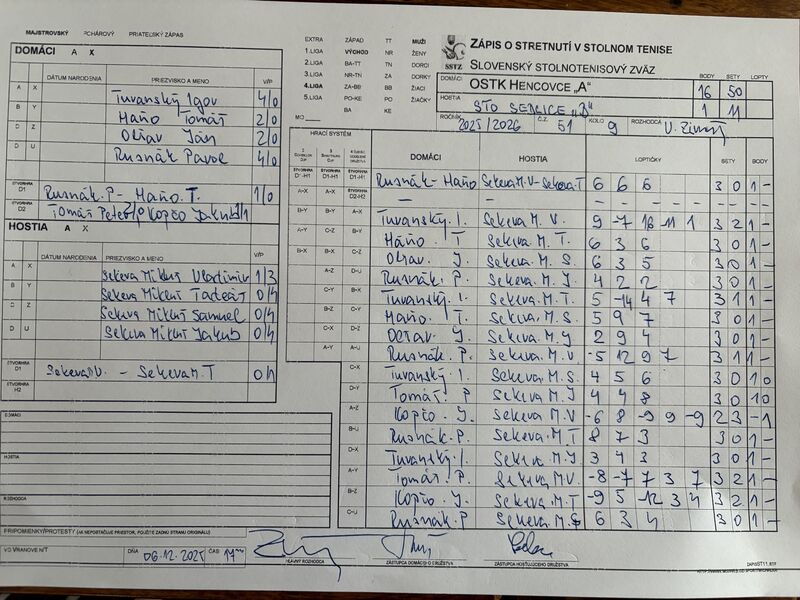 MAJSTROVSKÝ POHÁROVÝ PRIATEĽSKÝ ZÁPAS
DOMÁCI A X
DÁTUM NARODENIA PRIEZVISKO A MENO V/P
A X Tuvanský Igor 4/0
B Y Haňo Tomáš 2/0
C Z Oľšav Ján 2/0
D U Rusnák Pavol 4/0
ŠTVORHRA D1 Rusnák.P - Haňo.T. 1/0
ŠTVORHRA D2 Tomáš Peter / Kopčo Jakub
HOSTIA A X
DÁTUM NARODENIA PRIEZVISKO A MENO V/P
A X Sekeva Mikluš Vladimír 1/3
B Y Sekeva Mikluš Tadeáš 0/4
C Z Sekeva Mikluš Samuel 0/4
D U Sekeva Mikluš Jakub 0/4
ŠTVORHRA D1 Sekeva M.V. - Sekeva M.T 0/1
ŠTVORHRA H2
DOMÁCI
HOSTIA
ROZHODCA
PRIPOMIENKY/PROTESTY (AK NEPOSTAČUJE PRIESTOR, POUŽITE ZADNÚ STRANU ORIGINÁLU)
VO VRANOVE N/T DŇA 06.12.2025 ČAS 17
HLAVNÝ ROZHODCA ZÁSTUPCA DOMÁCEHO DRUŽSTVA ZÁSTUPCA HOSŤUJÚCEHO DRUŽSTVA
EXTRA ZÁPAD TT MUŽI
1.LIGA VÝCHOD NR ŽENY
2.LIGA BA-TT TN DORCI
3.LIGA NR-TN ZA DORKY
4.LIGA ZA-BB BB ŽIACI
5.LIGA PO-KE PO ŽIAČKY
MO BA KE
SSTZ
ZÁPIS O STRETNUTÍ V STOLNOM TENISE
SLOVENSKÝ STOLNOTENISOVÝ ZVÄZ
BODY SETY LOPTY
DOMÁCI OSTK HENCOVCE „A" 16 50
HOSTIA STO SEDLICE „B" 1 11
ROČNÍK 2025/2026 Č.Z. 51 KOLO 9 ROZHODCA
HRACÍ SYSTÉM DOMÁCI HOSTIA LOPTIČKY SETY BODY
D1-H1 D1-H1 D1-H1 Rusnák - Haňo Sekeva M.V - Sekeva.T 6 6 6 3 0 1 -
A-X A-X D2-H2 - -
B-Y B-Y A-X Tuvanský.I. Sekeva M.V. 9 -7 16 -11 1 3 2 1 -
A-Y C-Z B-Y Haňo. T Sekeva M.T. 6 3 6 3 0 1 -
B-X A-X C-Z Oľšav. J. Sekeva M.S. 6 3 5 3 0 1 -
A-Z D-U Rusnák. P. Sekeva. M.J. 4 2 2 3 0 1 -
C-Y B-X Tuvanský.I. Sekeva.M.T. 5 -14 4 7 3 1 1 -
B-Z C-Y Haňo.T. Sekeva M.S. 5 9 7 3 0 1 -
C-X D-Z Sekeva M.J 2 9 4 3 0 1 -
A-Y A-U Rusnák. P. Sekeva. M.V -5 12 9 7 3 1 1 -
C-X Tuvanský.I. Sekeva M.S. 4 5 6 3 0 1 0
D-Y Tomáš P Sekeva M.J 4 4 8 3 0 1 0
A-Z Kopčo. J. Sekeva M.V -6 8 -9 9 -9 2 3 - 1
B-U Rusnák.P. Sekeva.M.T 8 7 3 3 0 1 -
D-X Tuvanský.I Sekeva. M.J 3 4 3 3 0 1 -
A-Y Tomáš. P. Sekeva M.V. -8 -7 7 3 7 3 2 1 -
B-Z Kopčo. J. Sekeva.M.T -9 5 -12 3 4 3 2 1 -
C-U Rusnák.P Sekeva M.S 6 3 4 3 0 1 -